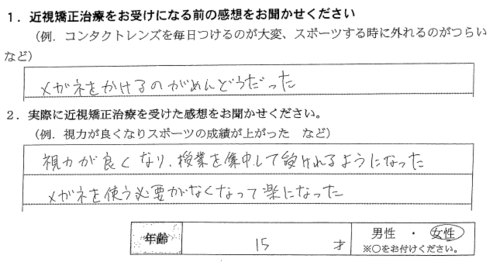 1．近視矯正治療をお受けになる前の感想をお聞かせください
（例．コンタクトレンズを毎日つけるのが大変、スポーツする時に外れるのがつらい
など）
メガネをかけるのがめんどうだった
2．実際に近視矯正治療を受けた感想をお聞かせください。
（例．視力が良くなりスポーツの成績が上がった　など）
視力が良くなり、授業を集中して受けれるようになった
メガネを使う必要がなくなって楽になった
年齢　15　才　男性 ・ 女性
※○をお付けください。